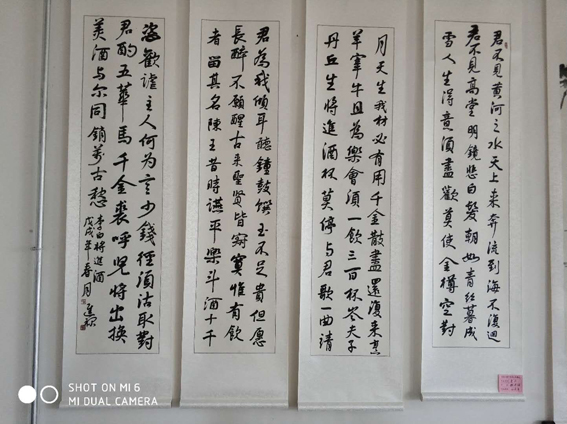 君不见黄河之水天上来奔流到海不复迴
君不見高堂明鏡悲白髮朝如青丝暮成
雪人生得意須盡歡莫使金樽空對
月天生我材必有用千金散盡還復来烹
羊宰牛且為樂會須一飲三百杯岑夫子
丹丘生將進酒杯莫停与君歌一曲請
君為我傾耳聽鐘鼓饌玉不足貴但愿
長醉不願醒古来聖賢皆寂寞惟有飲
者留其名陳王昔時讌平樂斗酒十千
恣歡謔主人何为言少錢徑須沽取對
君酌五華馬千金裘呼児將出换
美酒与尔同銷萬古愁 李白將進酒
戊戌年春月
SHOT ON MI 6
MI DUAL CAMERA